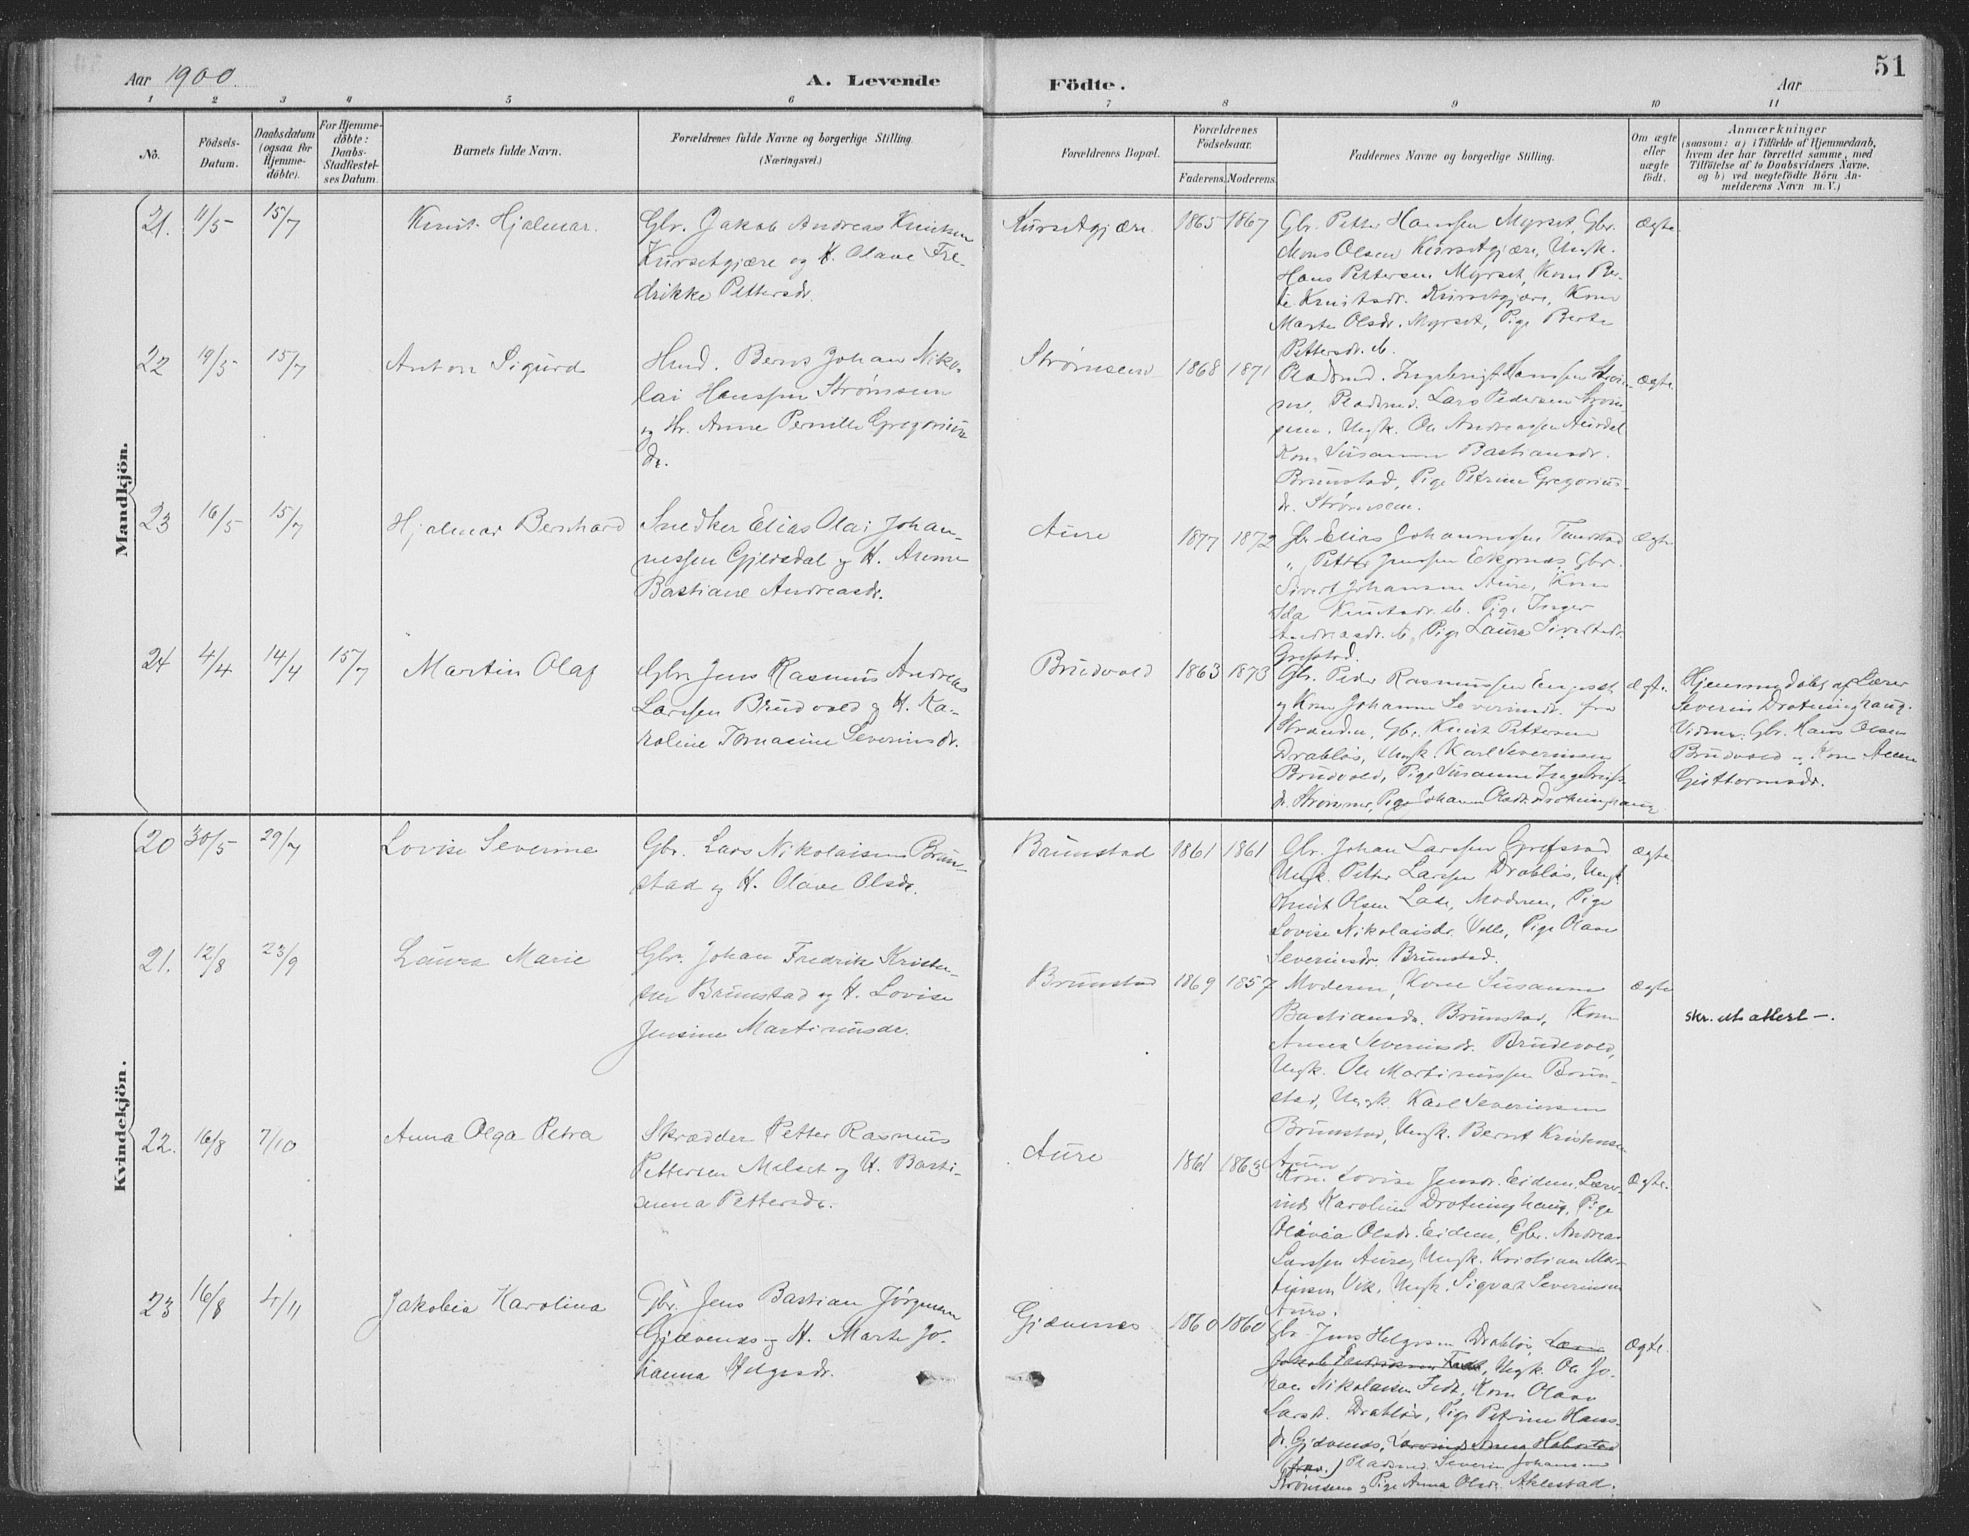 Aar 1900.
A. Levende
Födte.
Aar
51
1 2 3 4 5 6 7 8 9 10 11
No.
Födsels-
Datum.
Daabsdatum
(ogsaa for
Hjemme-
döbte).
For Hjemme-
döbte:
Daabs-
Stadfæstel-
ses Datum.
Barnets fulde Navn.
Forældrenes fulde Navne og borgerlige Stilling.
(Næringsvei.)
Forældrenes Bopæl.
Forældrenes
Födselsaar.
Faderens. Moderens.
Faddernes Navne og borgerlige Stilling.
Om ægte
eller
uægte
födt.
Anmærkninger
(saasom: a) i Tilfælde af Hjemmedaab,
hvem der har forrettet samme, med
Tilföielse af to Daabsvidners Navne,
og b) ved uægtefödte Börn An-
melderens Navn m. V.)
Mandkjön.
21. 11/5 15/7
Knut Hjalmar.
Gbr. Jakob Andreas Knutsen
Kursetgjære og H. Olave Fre-
drikke Pettersdr.
Kursetgjære.
1865 1867
Gbr. Petter Hanssen Myrset, Gbr.
Mons Olsen Kursetgjære, Ungk.
Hans Pettersen Myrset, Kone Ber-
te Knutsdr. Kursetgjære, Kone
Marte Olsdr. Myrset, Pige Berte
Pettersdr. ib.
Ægte
22 19/5 15/7
Anton Sigurd
Hmd. Bernt Johan Niko-
lai Hanssen Strømsem
og H. Anne Pernille Gregorius-
dr.
Strømsem
1868 1871
Pladsmd. Ingebrigt Hanssen
Pladsmd. Lars Pedersen Strøm-
sem, Ungk. Ole Andreassen Aurdal
Kone Susanne Bastiansdr.
Brunstad, Pige Petrine Gregorius-
dr. Strømsem.
Ægte
23 16/5 15/7
Hjalmar Bernhard
Snedker Elias Olai Johan-
nessen Gjeldsdal og H. Anne
Bastiane Andreasdr.
Aure
1877 1872
Gbr. Elias Johannessen Tanstad
„ Petter Jenssen Ekornæs, Gbr.
Sivert Johansen Aure, Kone
Ida Knutsdr. ib. Pige Inger
Andreasdr. ib., Pige Laura Sivertsdr.
Grefstad.
Ægte
24 4/4 14/4 15/7
Martin Olaf
Gbr. Jens Rasmus Andreas
Larssen Brudvold og H. Ka-
roline Tomasine Severinsdr.
Brudvold
1863 1873
Gbr. Peder Rasmussen Engeset
og Kone Johanne Severinsdr. fra
Stranden, Gbr. Knut Pettersen
Drabløs, Ungk. Karl Severinsen
Brudvold, Pige Susanne Ingebrigts-
dr. Strømmen, Pige Johanne Olsdr. Drotninghaug
Ægte.
Hjemmedøbt af Lærer
Severin Drotninghaug.
Vidner: Gbr. Hans Olsen
Brudvold og Kone Anne
Guttormsdr.
Kvindekjön.
20 30/5 29/7
Lovise Severine
Gbr. Lars Nikolaisen Brun-
stad og H. Olave Olsdr.
Brunstad
1861 1861
Gbr. Johan Larssen Grefstad
Ungk. Petter Larssen Drabløs, Ungk
Knut Olsen Lade, Moderen, Pige
Lovise Nikolaisdr. Velle, Pige Olave
Severinsdr. Brunstad.
Ægte
21. 12/8 23/9
Laura Marie
Gbr. Johan Fredrik Kristen-
sen Brunstad og H. Lovise
Jensine Martinusdr.
Brunstad
1869 1857
Moderen, Kone Susanne
Bastiansdr. Brunstad, Kone
Anna Severinsdr. Brudevold,
Ungk. Ole Martinussen Brun-
stad, Ungk. Karl Severinsen
Brunstad, Ungk. Bernt Kristensen
Aure
Ægte
skr. ut attest –.
22. 16/8 7/10
Anna Olga Petra
Skrædder Petter Rasmus
Pettersen Melset og H. Basti-
anna Pettersdr.
Aure
1861 1863
Kone Lovise Jensdr. Eidem, Lærer-
inde Karoline Drotninghaug, Pige
Olavia Olsdr. Eidem, Gbr. Andreas
Larssen Aure, Ungk. Kristian Mar-
tinsen Vik, Ungk. Sigvat Severinsen
Aure.
Ægte.
23 16/8 4/11
Jakobia Karolina
Gbr. Jens Bastian Jørgensen
Gjævenæs og H. Marte Jo-
hanna Helgesdr.
Gjævenæs
1860 1860
Gbr. Jens Helgesen Drabløs, Lærer
Jakob Fredriksen Fedt, Ungk. Ole Jo-
han Nikolaisen Fedt, Kone Olave
Larsdr. Drabløs, Pige Petrine Hans-
dr. Gjævenæs, Lærerinde Anna
Pladsmd. Severin Johansen
Strømsem og Pige Anna Olsdr. Aklestad.
Ægte.